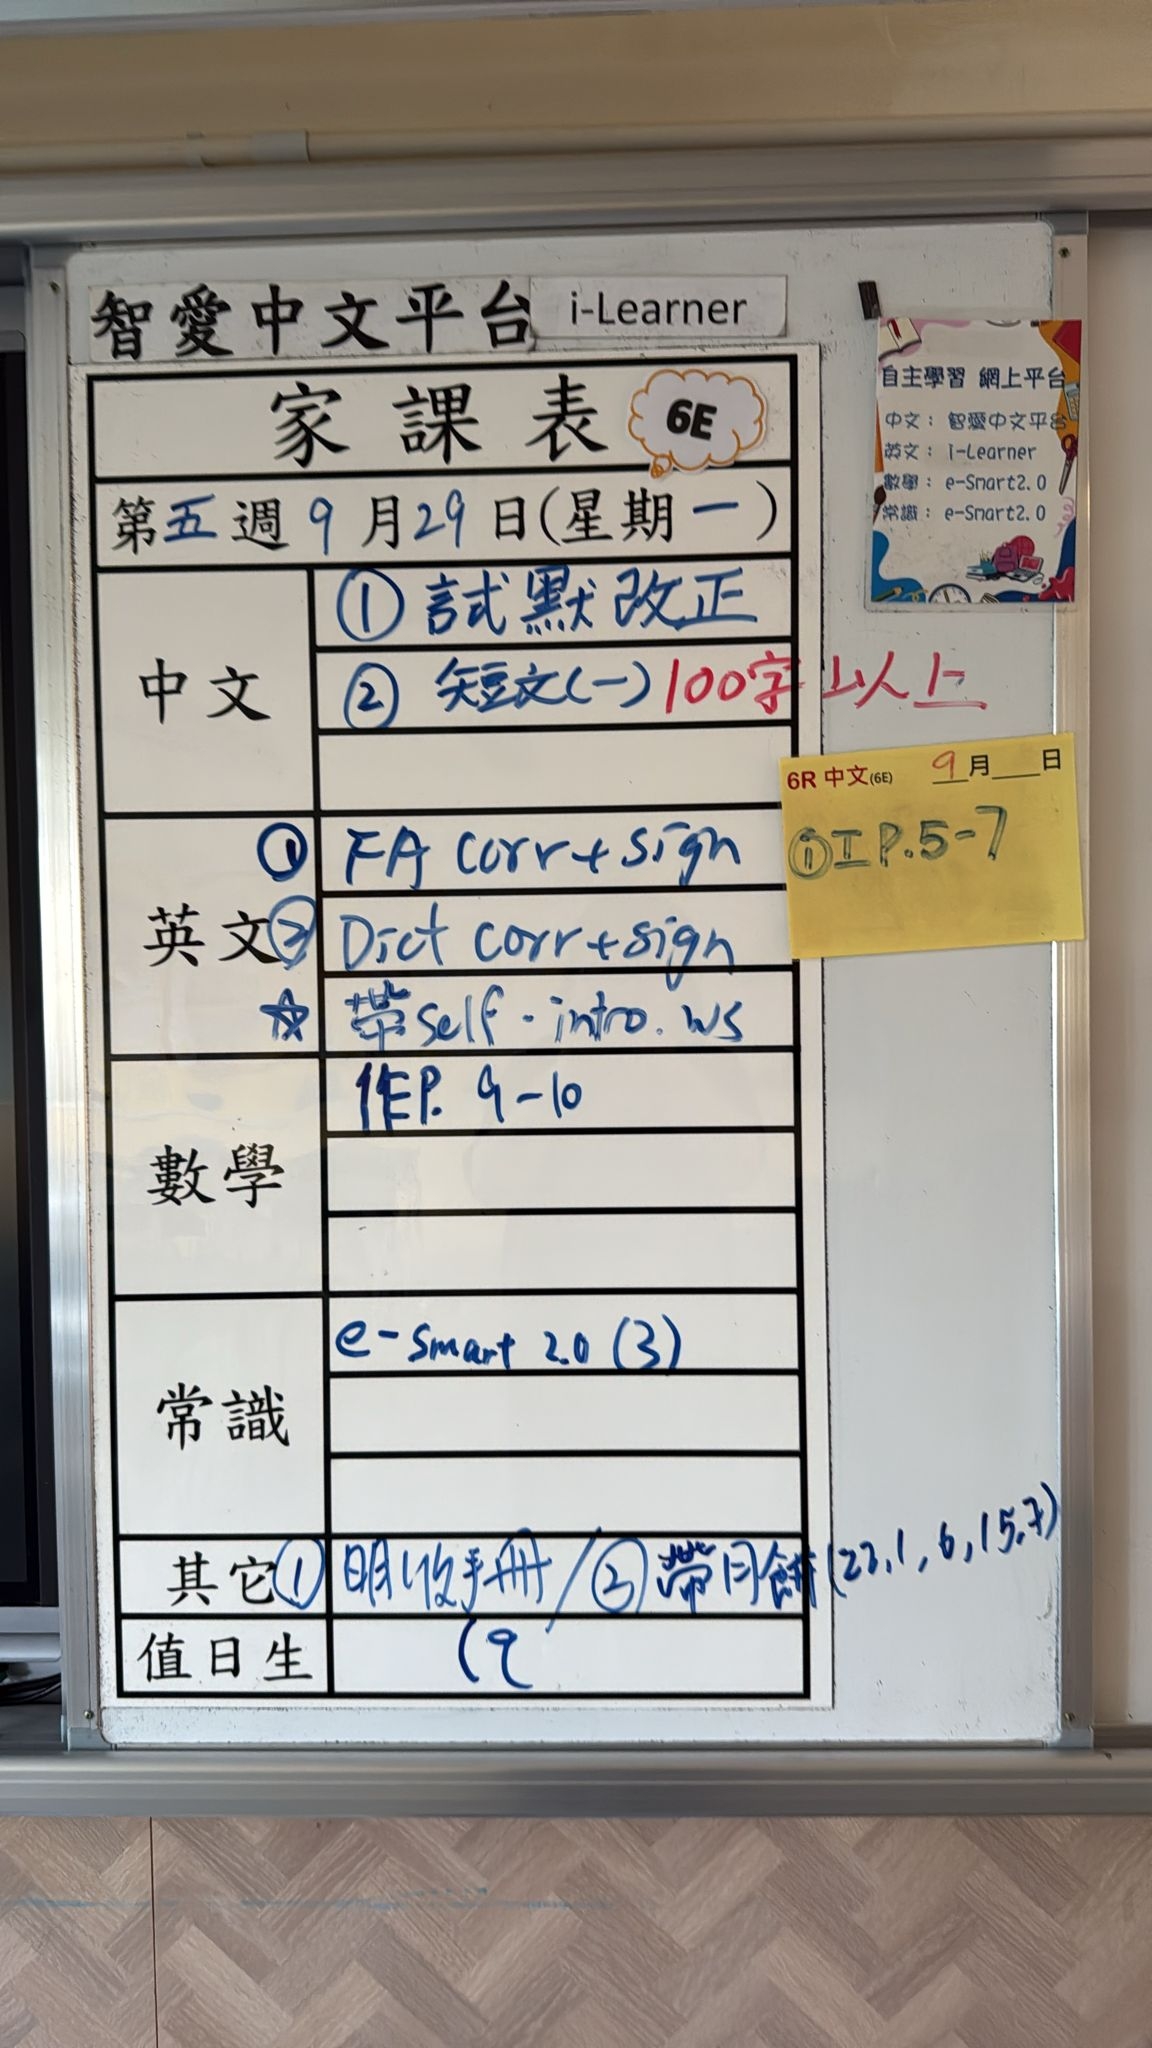 智愛中文平台 i-Learner
家課表 6E
第五週9月29日(星期一)
中文
① 試默改正
② 短文(一) 100字以上
英文
① FA corr + sign
② Dict corr + sign
☆ 帶self-intro. ws
數學
作P. 9-10
常識
e-smart 2.0 (3)
其它
① 明收手冊 / ② 帶月餅 (22,1,6,15,7)
值日生
19
自主學習 網上平台
中文： 智愛中文平台
英文： i-Learner
數學： e-Smart2.0
常識： e-Smart2.0
6R 中文(6E) 9月__日
① 工 P.5-7